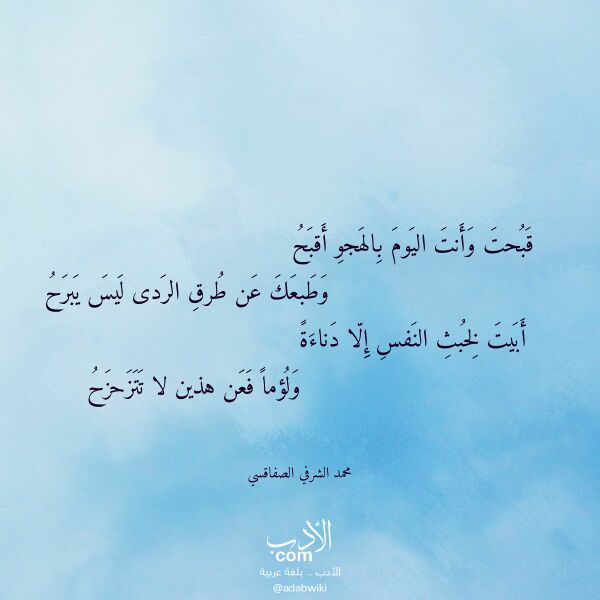 قَبُحتَ وَأَنتَ اليَومَ بِالهَجوِ أَقبَحُ
وَطَبعَكَ عَن طُرقِ الرَدى لَيسَ يَبرَحُ
أَبَيتَ لِخُبثِ النَفسِ إِلّا دَناءَةً
وَلُؤماً فَعَن هذين لا تَتَزَحزَحُ
محمد الشرفي الصفاقسي
الأدب
com
الأدب .. بلغة عربية
@adabwiki